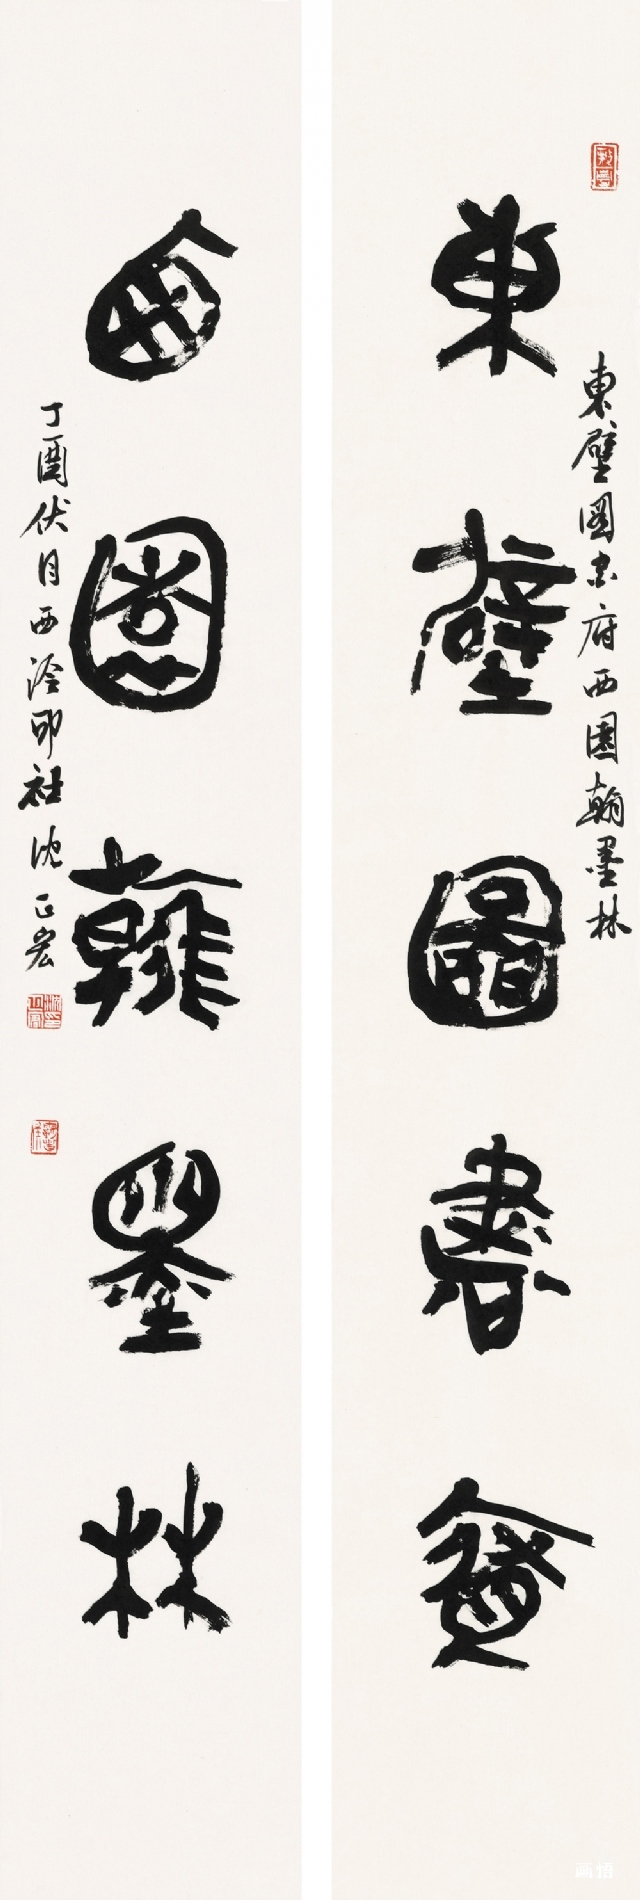 東壁圖書府
東壁圖書府西園翰墨林
西園翰墨林
丁酉伏月西泠印社沈正宏
画悟